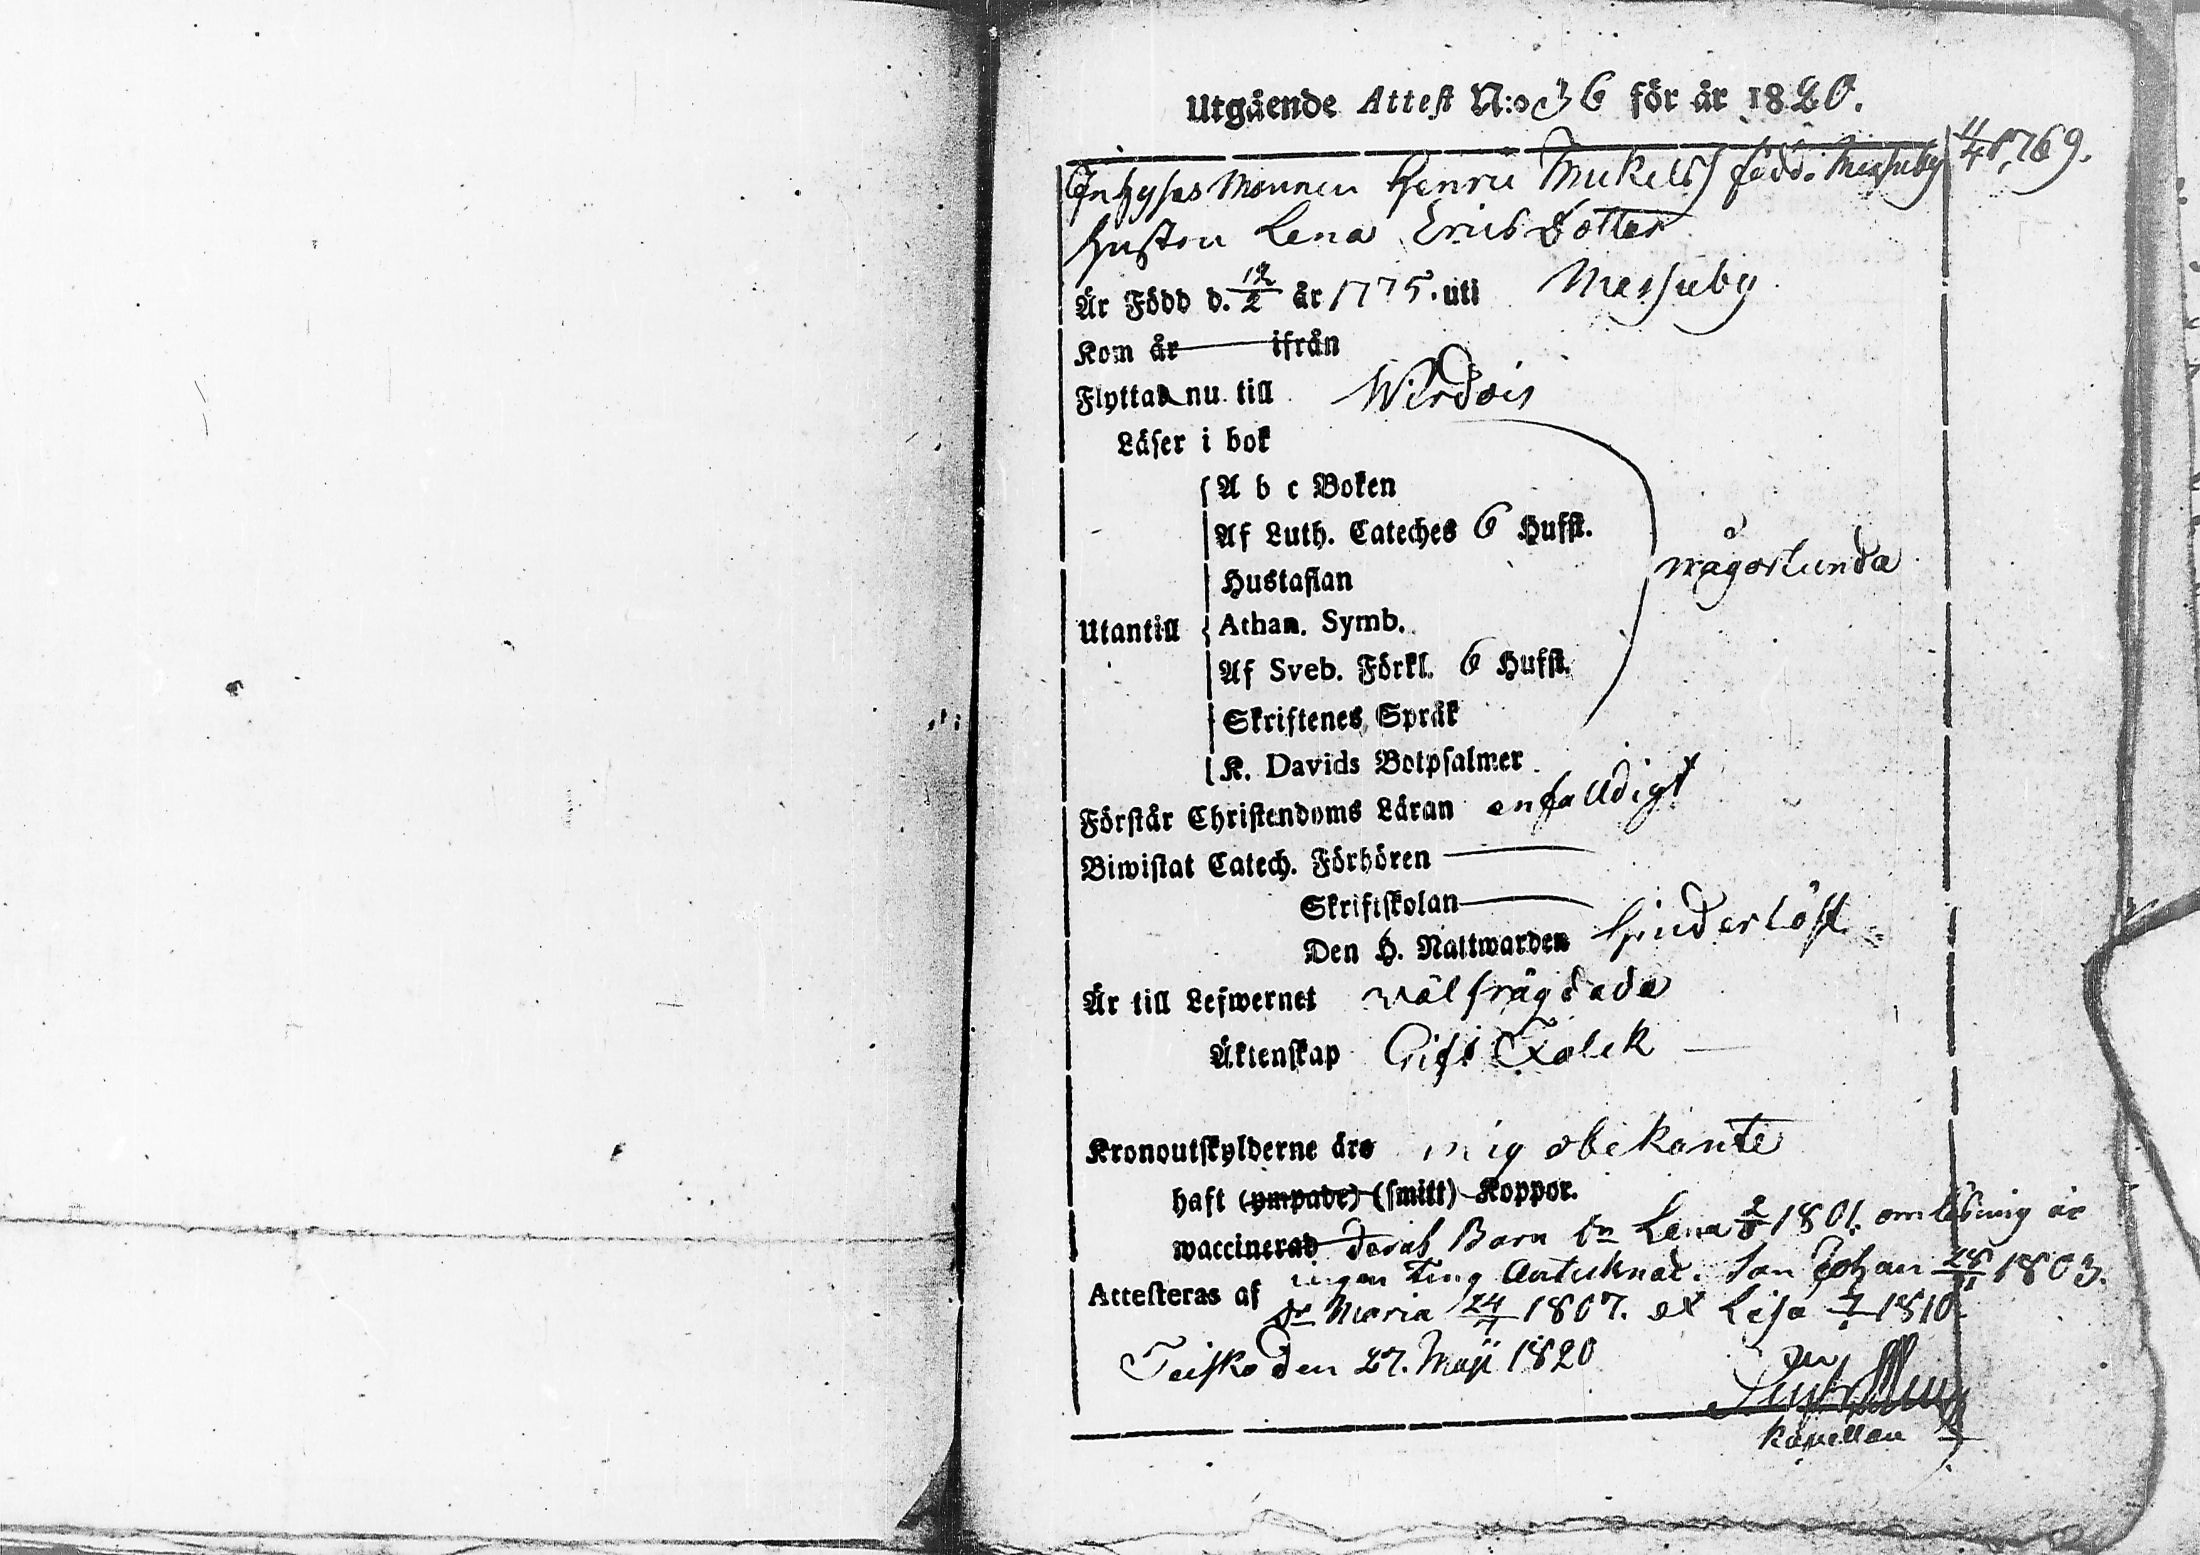 Utgående Attest N:o 36 för år 1820.
Inhyses Mannen Henric Mickelss född i Messuby 4/4 1769.
Hustru Lena Ericsdotter
Är Född d. 12/2 år 1775. uti Messuby
Kom år ifrån
Flyttar nu till Wirdois
Läser i bok
A b c Boken
Af Luth. Cateches 6 Hufst.
någorlunda
Hustaflan
Utantill Athan. Symb.
Af Sveb. Förkl. 6 Hufst.
Skriftenes Språk
K. Davids Botpsalmer
Förstår Christendoms Läran enfalldigt
Biwistat Catech. Förhören
Skriftskolan
Den H. Nattwarden hinderlöst
Är till Lefwernet wälfrägdade
Äktenskap Gift Folck
Kronoutskylderne äro mig obekante
haft (ympade) (smitt) Koppor.
waccinerad Deras Barn Lena 1801. om lösning är
ingen ting Antecknat. Son Johan 1803.
Attesteras af Dr Maria 24/7 1807. et Lisa 1810
Teisko den 27. Maji 1820
Kapellan